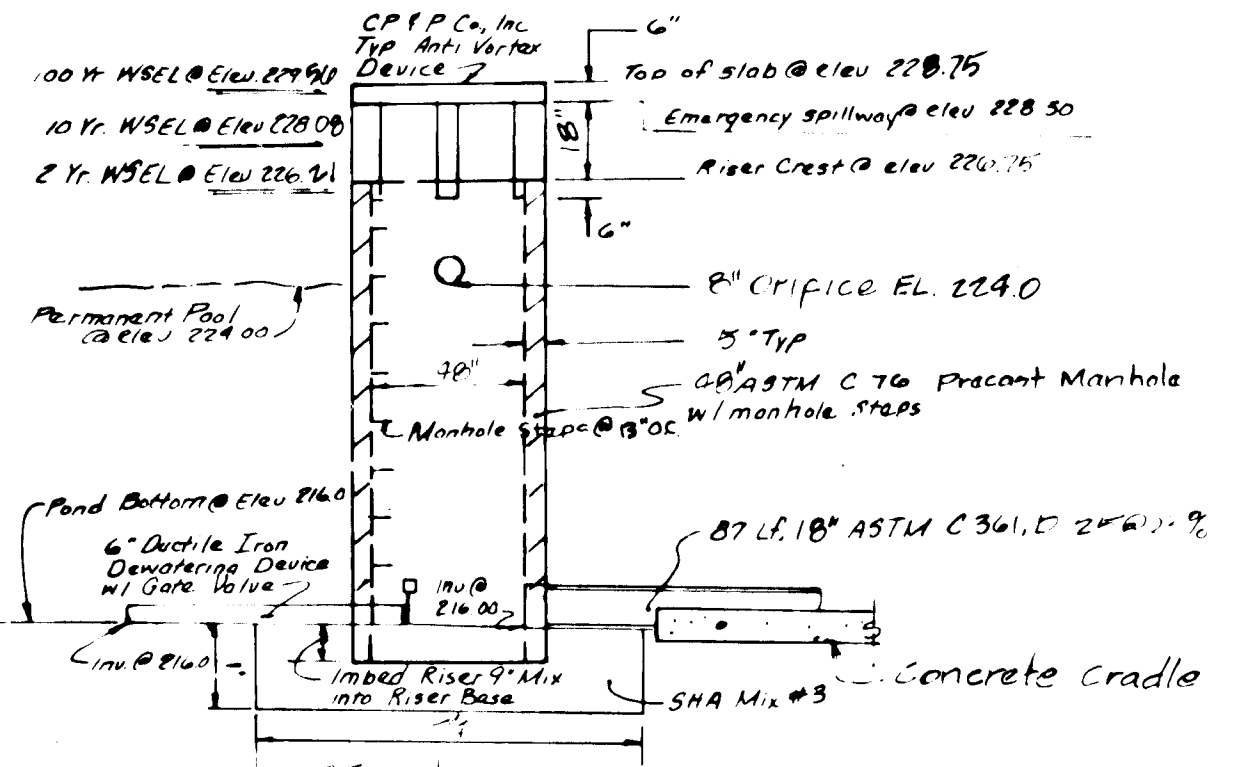 CP & P Co., Inc
Typ Anti Vortex
Device
6"
100 Yr WSEL @ Elev.
Top of slab @ elev 228.75
10 Yr. WSEL @ Elev 228.08
18"
Emergency spillway @ elev 228 50
2 Yr. WSEL @ Elev 226.21
Riser Crest @ elev
6"
8" Orifice EL. 224.0
Permanent Pool
@ elev 224 00
5" Typ
48"
48" ASTM C 76 Precast Manhole
w/ manhole steps
Manhole Steps @ OC.
Pond Bottom @ Elev 216.0
87 Lf. 18" ASTM C 361, %
6" Ductile Iron
Dewatering Device
w/ Gate Valve
Inv @
216.00
Inv. @ 216.0
Imbed Riser 9" Mix
into Riser Base
SHA Mix #3
Concrete Cradle